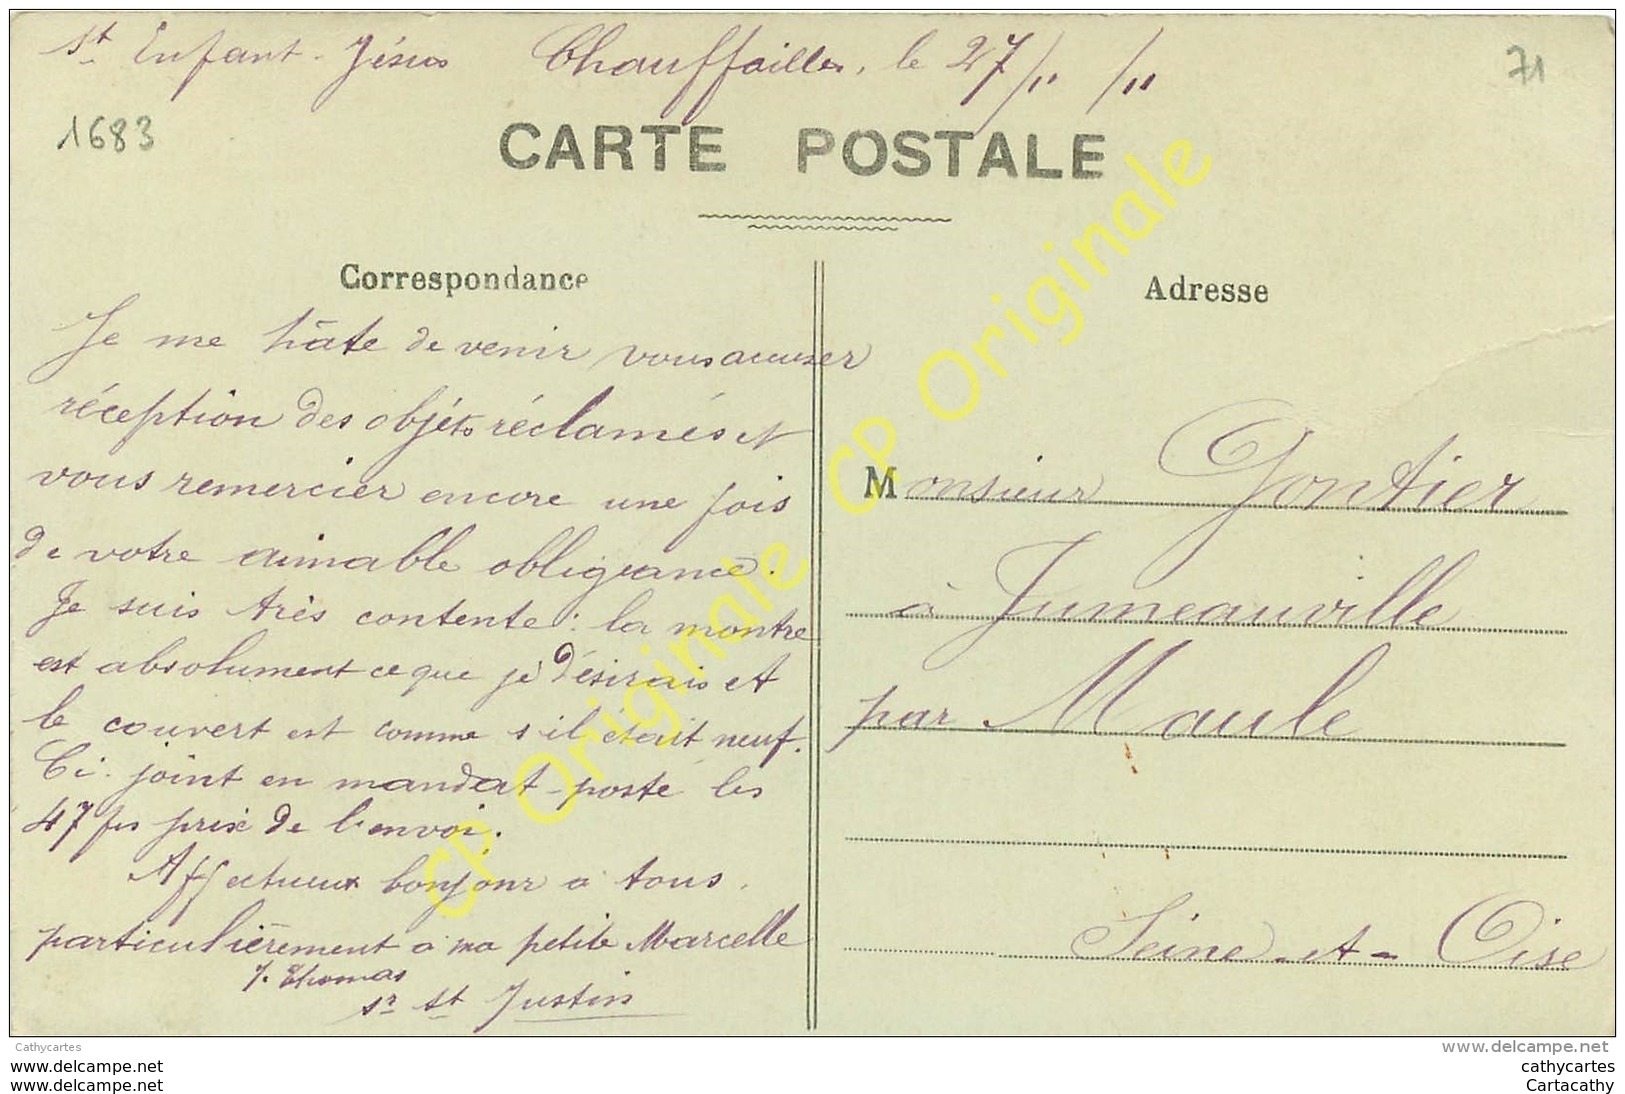 St Enfant-Jésus Chauffailles, le 27/11/11
71
1683
CARTE POSTALE
Correspondance
Adresse
Je me hâte de venir vous accuser
réception des objets réclamés et
vous remercier encore une fois
de votre aimable obligeance.
Je suis très contente : la montre
est absolument ce que je désirais et
le couvert est comme s'il était neuf.
Ci-joint en mandat-poste les
47 frs prix de l'envoi.
Affectueux bonjour à tous,
particulièrement à ma petite Marcelle
J. Thomas
sr St Justin
Monsieur Gontier
à Jumeauville
par Maule
Seine-et-Oise
CP Originale CP Originale CP Originale
Cathycartes
www.delcampe.net
www.delcampe.net
www.delcampe.net
cathycartes
Cartacathy